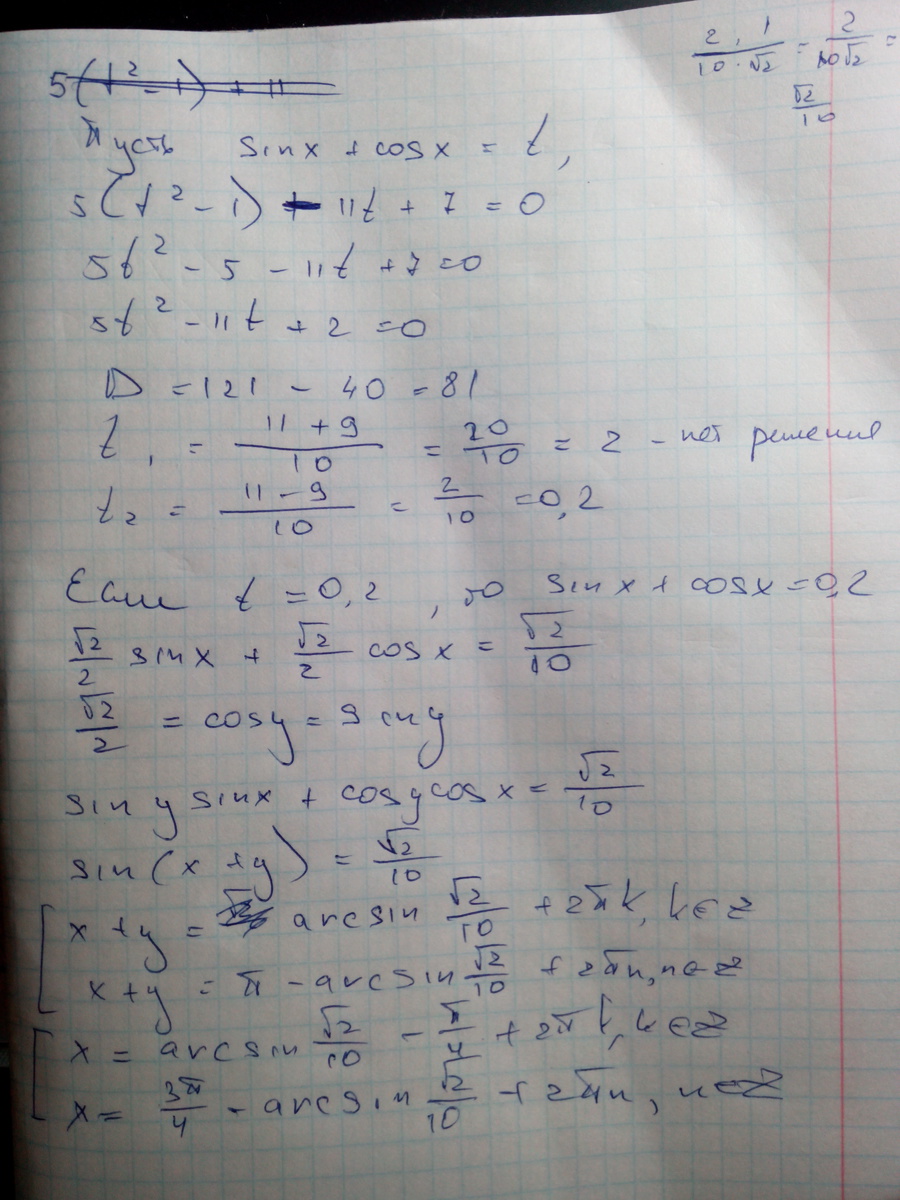 2 · 1 / 10 · √2 = 2 / 10√2 =
√2 / 10
5(t² - 1) + 11
Пусть sinx + cosx = t,
5(t² - 1) - 11t + 7 = 0
5t² - 5 - 11t + 7 = 0
5t² - 11t + 2 = 0
D = 121 - 40 = 81
t₁ = (11 + 9) / 10 = 20 / 10 = 2 - нет решения
t₂ = (11 - 9) / 10 = 2 / 10 = 0,2
Если t = 0,2, то sinx + cosx = 0,2
√2/2 sinx + √2/2 cosx = √2/10
√2/2 = cosy = siny
siny sinx + cosy cosx = √2/10
sin(x + y) = √2/10
x + y = arcsin √2/10 + 2πk, k ∈ Z
x + y = π - arcsin √2/10 + 2πn, n ∈ Z
x = arcsin √2/10 - π/4 + 2πk, k ∈ Z
x = 3π/4 - arcsin √2/10 + 2πn, n ∈ Z